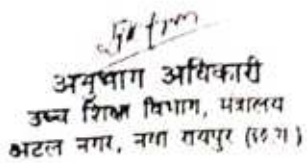 अनुभाग अधिकारी
उच्च शिक्षा विभाग, मंत्रालय
अटल नगर, नवा रायपुर (छ.ग)